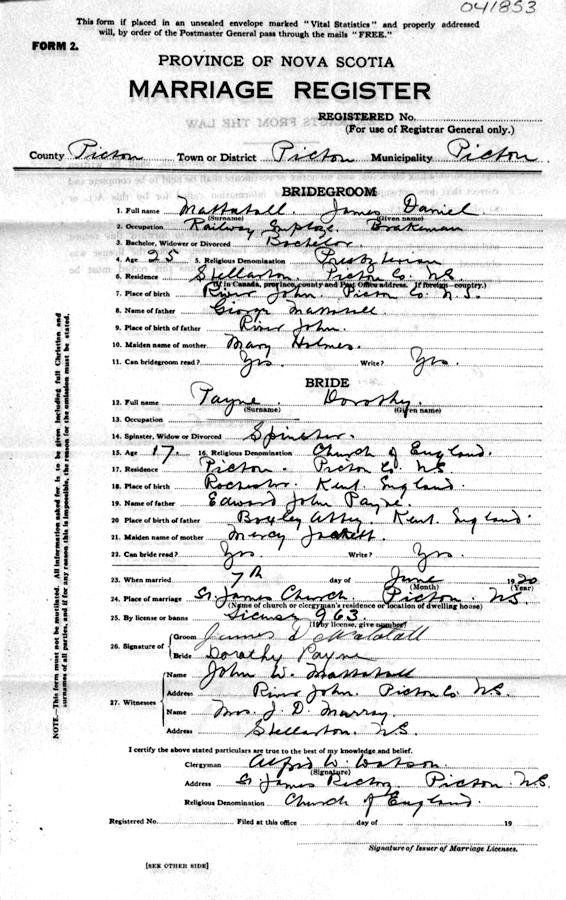 041853
This form if placed in an unsealed envelope marked "Vital Statistics" and properly addressed
will, by order of the Postmaster General pass through the mails "FREE."
FORM 2.
PROVINCE OF NOVA SCOTIA
MARRIAGE REGISTER
REGISTERED No.
(For use of Registrar General only.)
County Pictou Town or District Pictou Municipality Pictou
BRIDEGROOM
1. Full name Mattatall James Daniel
(Surname) (Given name)
2. Occupation Railway Employe Brakeman
3. Bachelor, Widower or Divorced Bachelor
4. Age 25 5. Religious Denomination Presbyterian
6. Residence Stellarton. Pictou Co. N.S.
(If in Canada, province, county and Post Office address. If foreign—country.)
7. Place of birth River John Pictou Co. N.S.
8. Name of father George Mattatall
9. Place of birth of father River John.
10. Maiden name of mother Mary Holmes.
11. Can bridegroom read? Yes. Write? Yes.
BRIDE
12. Full name Payne Dorothy.
(Surname) (Given name)
13. Occupation
14. Spinster, Widow or Divorced Spinster.
15. Age 17. 16. Religious Denomination Church of England.
17. Residence Pictou. Pictou Co. N.S.
18. Place of birth Rochester. Kent. England.
19. Name of father Edward John Payne.
20. Place of birth of father Boxley Abbey. Kent. England.
21. Maiden name of mother Mercy
22. Can bride read? Yes. Write? Yes.
23. When married 7th day of June 1920
(Month) (Year)
24. Place of marriage St. James Church. Pictou. N.S.
(Name of church or clergyman's residence or location of dwelling house)
25. By license or banns License 963.
(If by license, give number)
26. Signature of Groom James D Mattatall
Bride Dorothy Payne
27. Witnesses Name John W. Mattatall
Address River John. Pictou Co. N.S.
Name Mrs. J. D. Murray.
Address Stellarton. N.S.
I certify the above stated particulars are true to the best of my knowledge and belief.
Clergyman Alfred W. Watson.
(Signature)
Address St. James Rectory Pictou. N.S.
Religious Denomination Church of England.
Registered No. Filed at this office day of 19
Signature of Issuer of Marriage Licenses.
[SEE OTHER SIDE]
NOTE.—This form must not be mutilated. All information asked for is to be given including full Christian and
surnames of all parties, and if for any reason this is impossible, the reason for the omission must be stated.